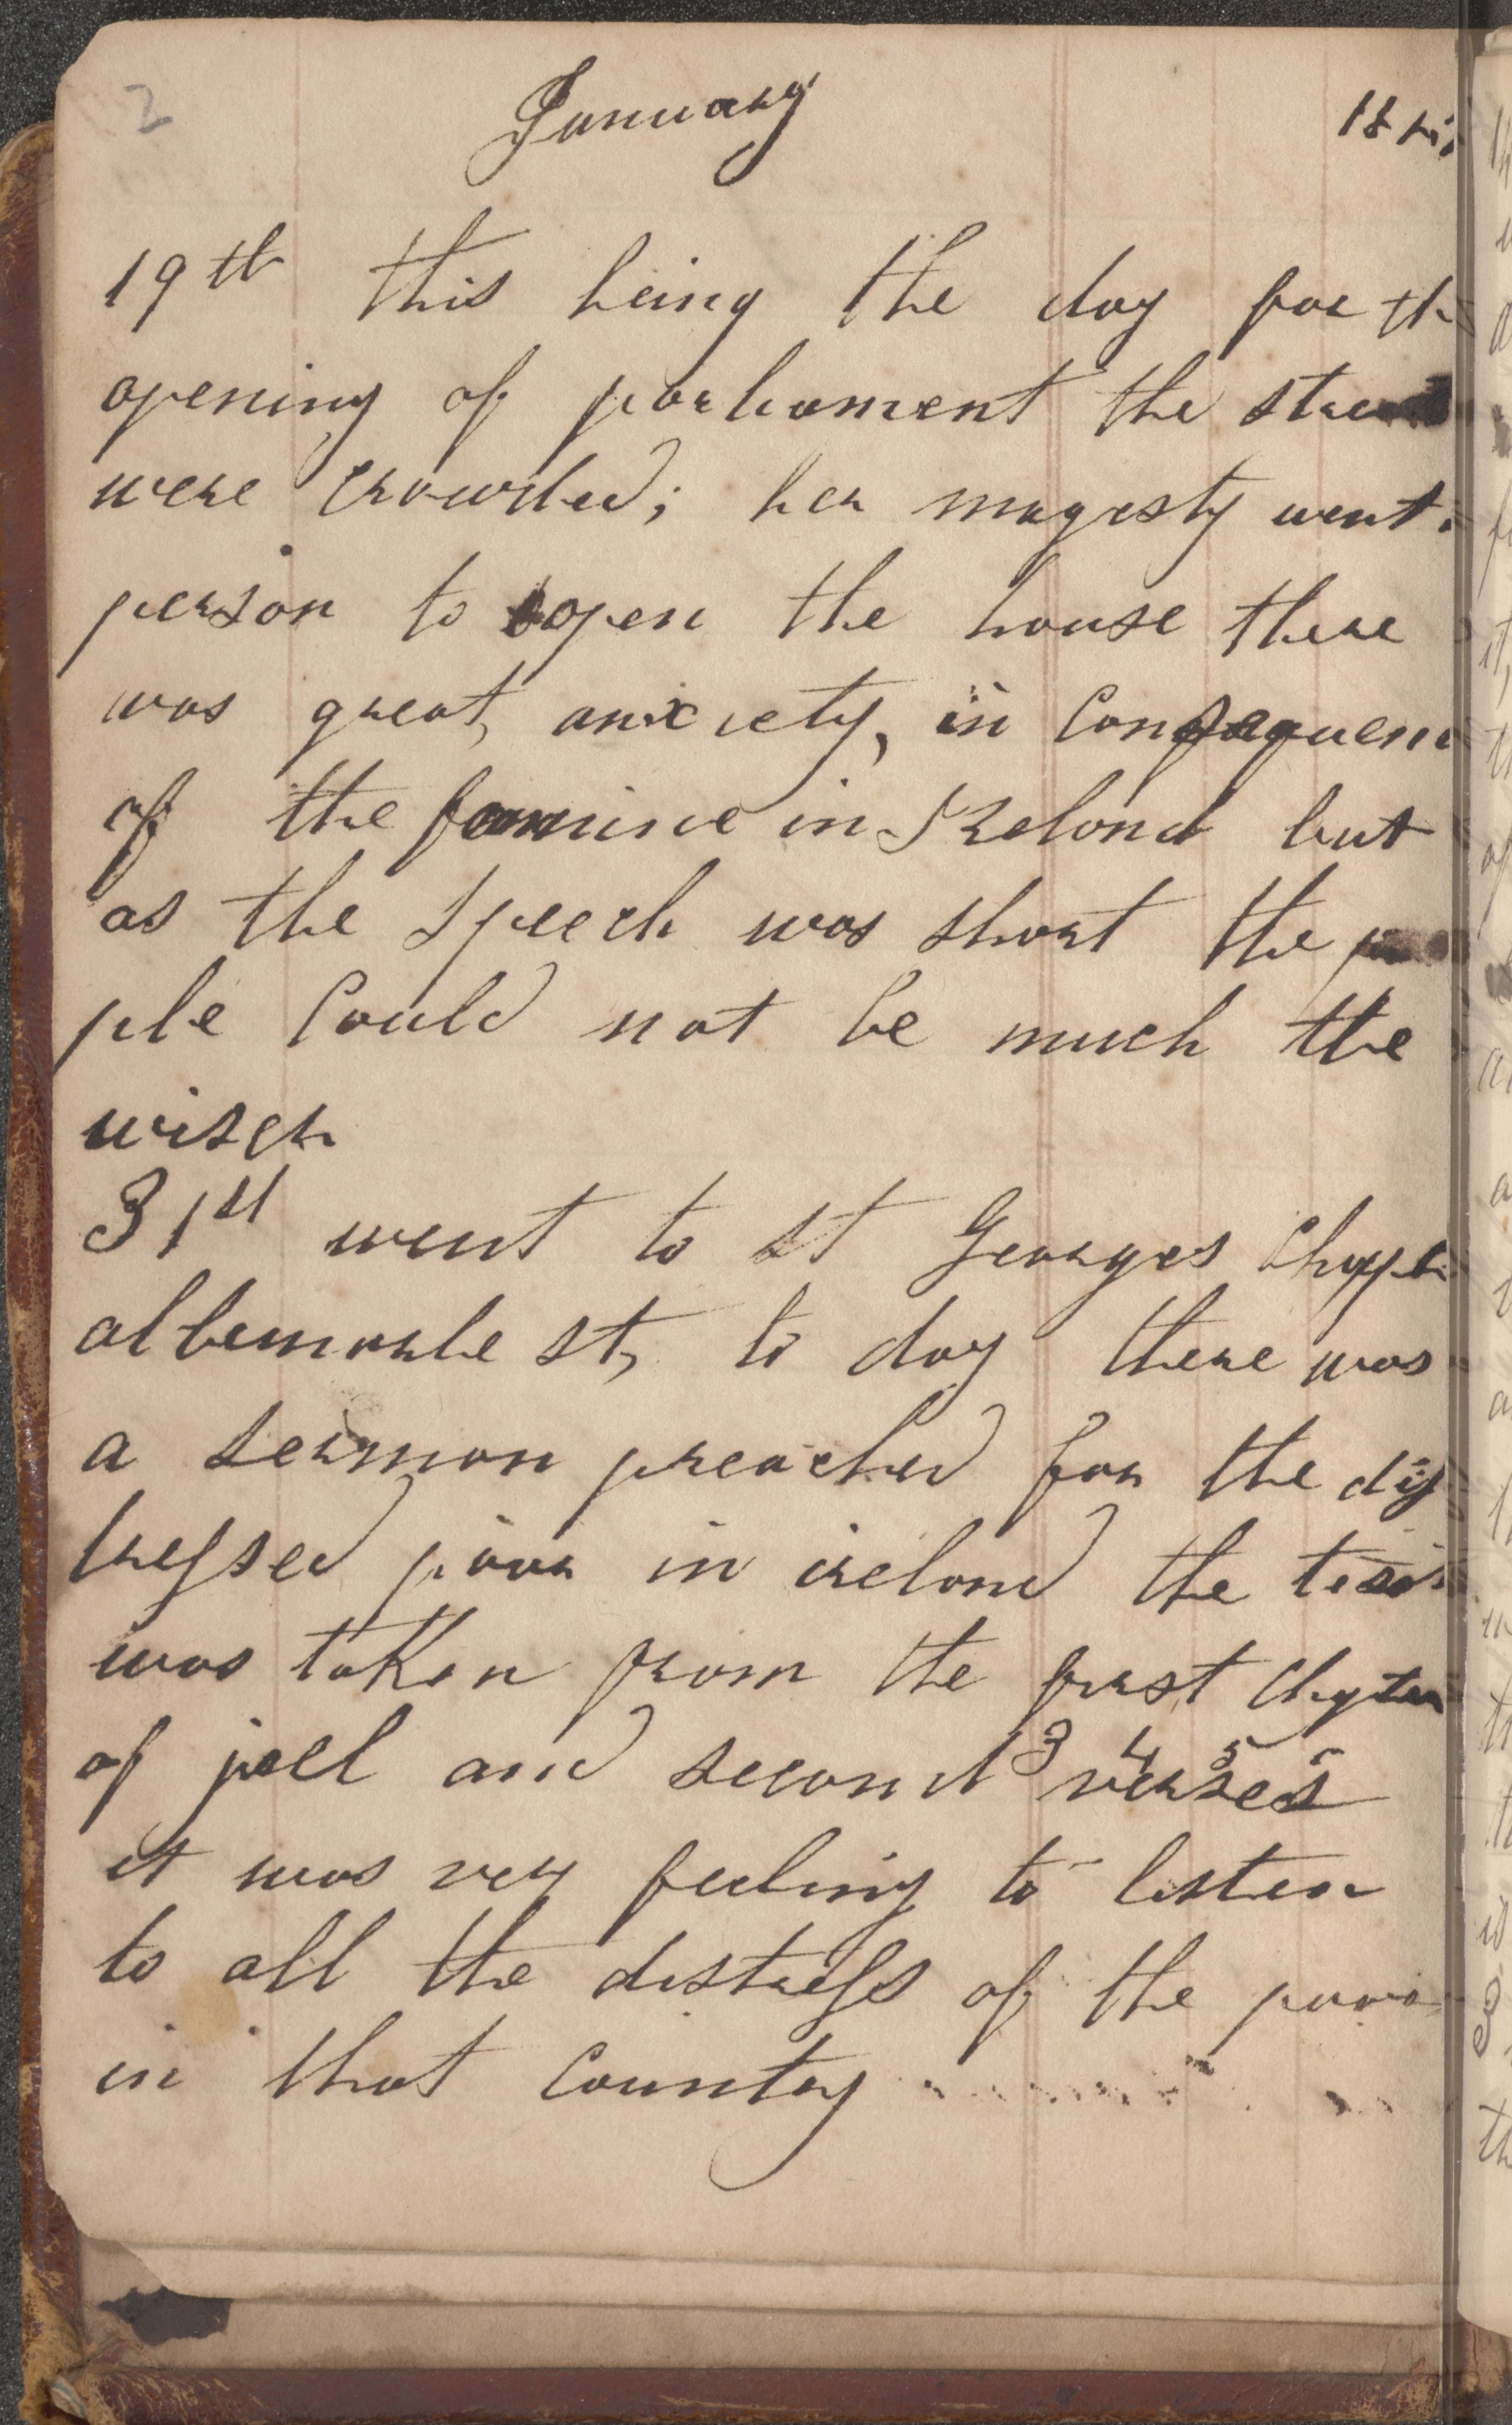 2
January 18
19th this being the day for th
opening of parliament the street
were crowded; her magesty went
person to open the house there
was great anxciety, in Consequenc
of the famine in Ireland but
as the speech was short the
ple Could not be much the
wiser
31st went to st Georges Chape
albemarle st, to day there was
a sermon preached for the dis
tressed poor in ireland the
was taken from the first Chapter
of joell and second 3 4 5 verses
it was very feeling to listen
to all the distress of the poor
in that Country